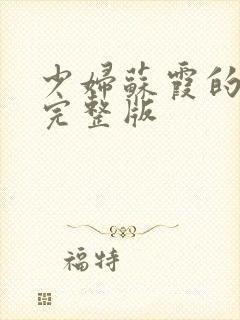 少婦蘇霞的
完整版
福特